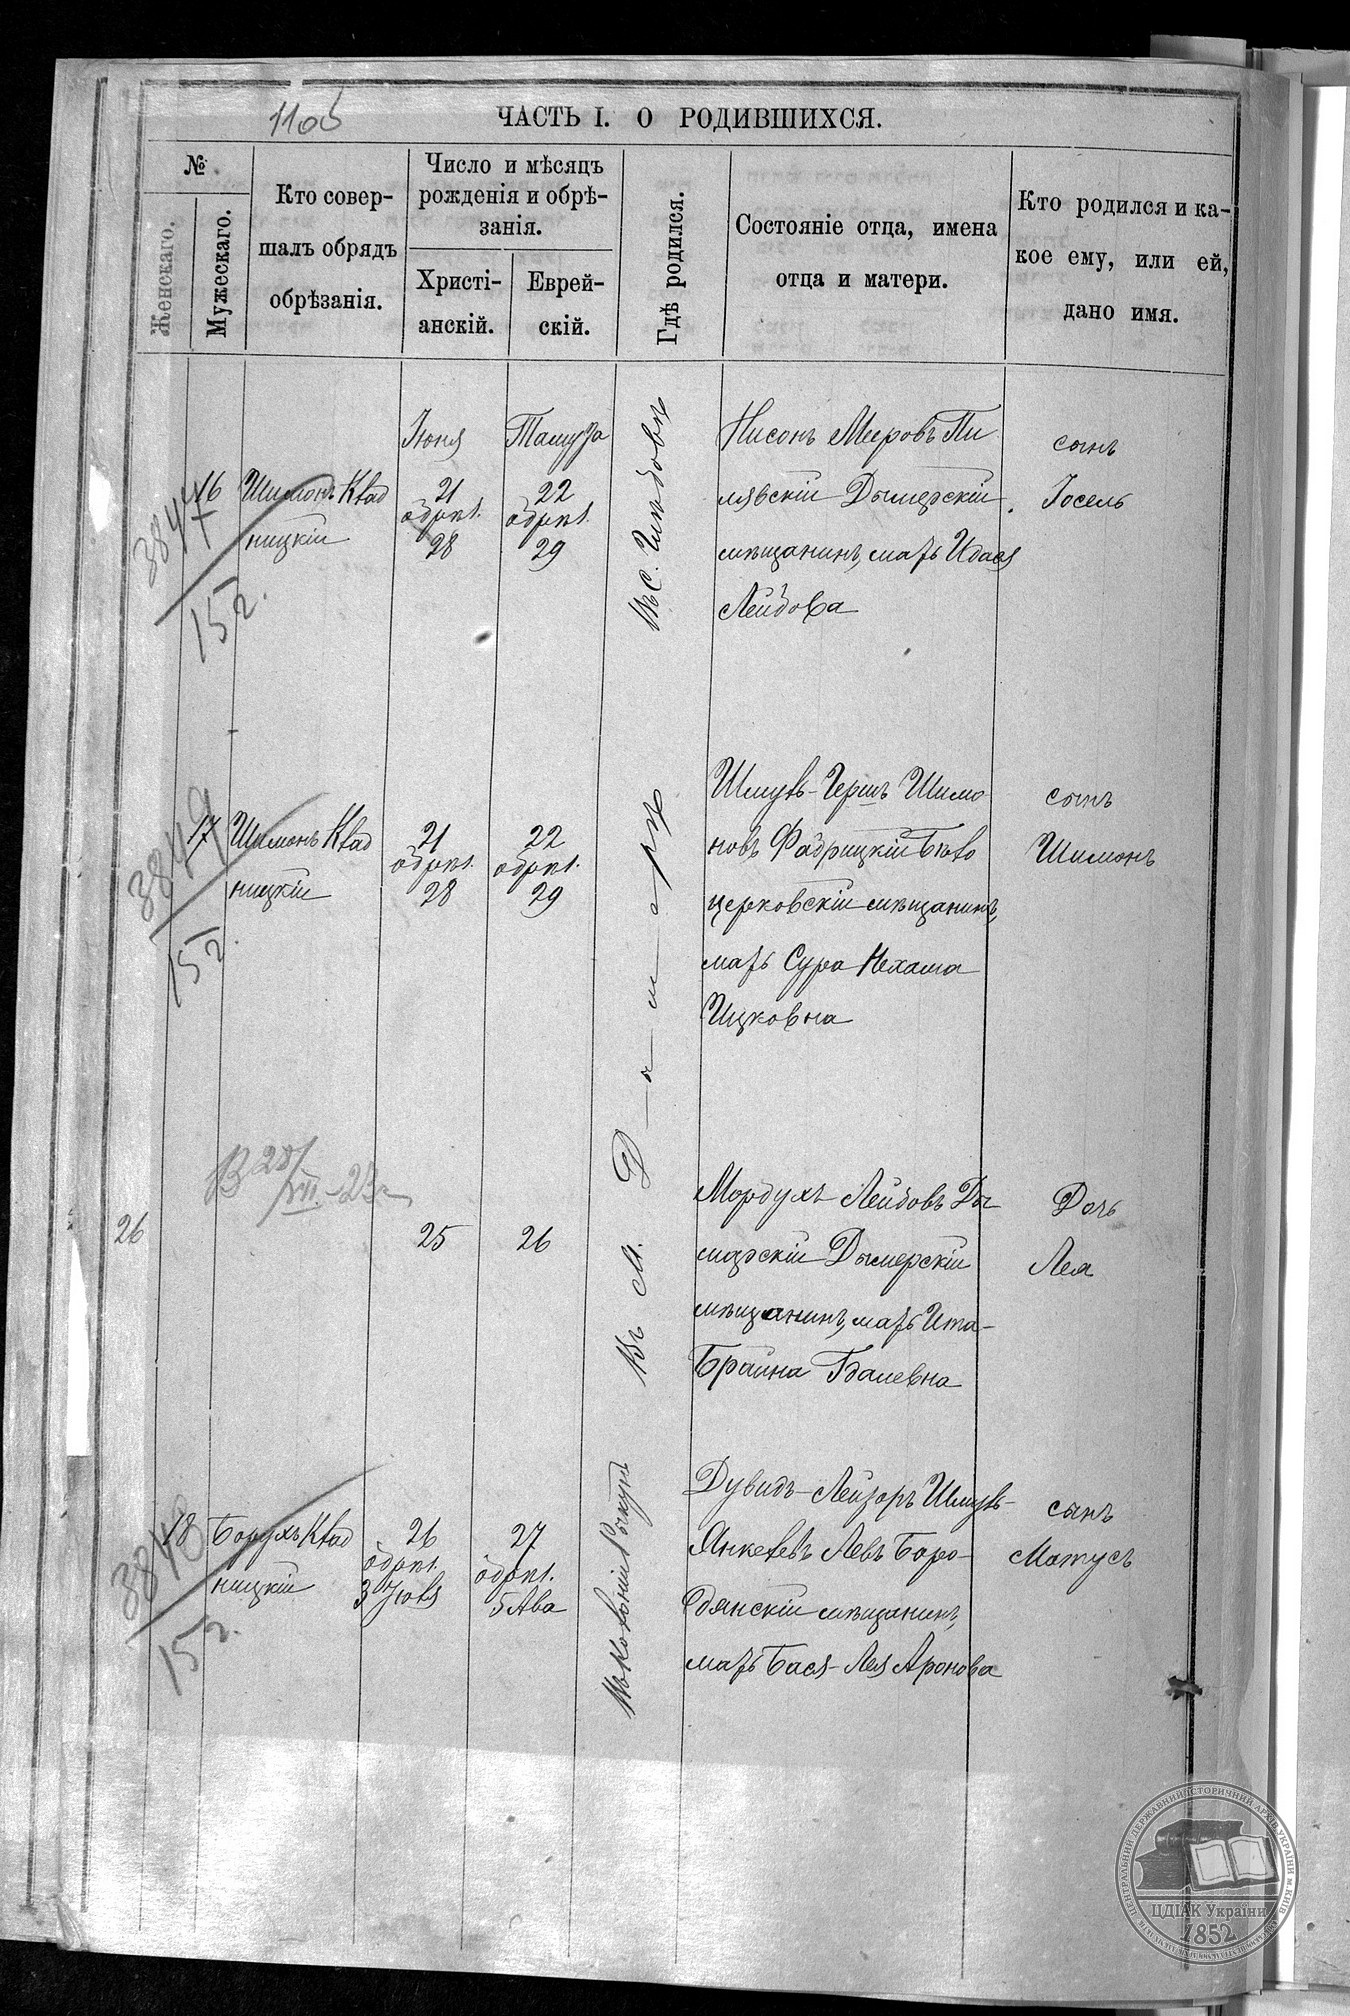 1105
ЧАСТЬ I. О РОДИВШИХСЯ.
№
Женскаго.
Мужескаго.
Кто совер-
шалъ обрядъ
обрѣзанія.
Число и мѣсяцъ
рожденія и обрѣ-
занія.
Христі-
анскій.
Еврей-
скій.
Гдѣ родился.
Состояніе отца, имена
отца и матери.
Кто родился и ка-
кое ему, или ей,
дано имя.
3844
15 г.
16
Шимонъ Квад
ницкій
Іюня
21
обрѣз.
28
Тамуза
22
обрѣз.
29
Въ с.
Нисонъ Мееровъ Пи
лявскій Дымерскій
мѣщанинъ, мать Идася
Лейбова
сынъ
Іосель
3849
15 г.
17
Шимонъ Квад
ницкій
21
обрѣз.
28
22
обрѣз.
29
Въ м. Дымерѣ
Шмуль-Гершъ Шимо
новъ Фабрицкій Бѣло
церковскій мѣщанинъ,
мать Сура Нехама
Ицковна
сынъ
Шимонъ
В 28/VII-23 г.
26
25
26
Мордухъ Лейбовъ Ды
марскій Дымерскій
мѣщанинъ, мать Ита-
Брайна Гдалевна
Дочь
Лея
3848
15 г.
18
Борухъ Квад
ницкій
26
обрѣз.
3 Іюля
27
обрѣз.
5 Ава
Дувидъ-Лейзоръ Шмуль-
Янкелевъ Левъ Боро-
дянскій мѣщанинъ,
мать Бася-Лея Аронова
сынъ
Матусъ
ЦЕНТРАЛЬНИЙ ДЕРЖАВНИЙ ІСТОРИЧНИЙ АРХІВ УКРАЇНИ м.КИЇВ
ЦДІАК України
1852